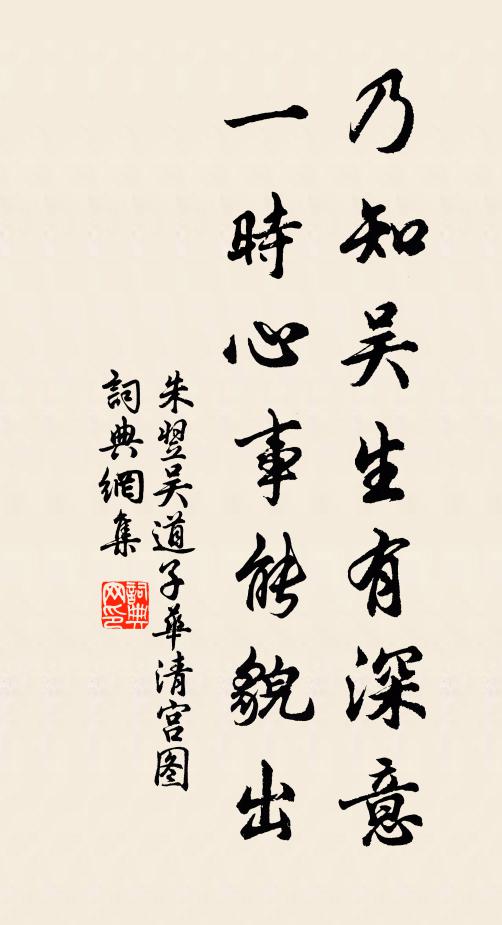 乃知吴生有深意
一時心事能貌出
朱翌吴道子華清宫图
詞典網集
詞典
网印